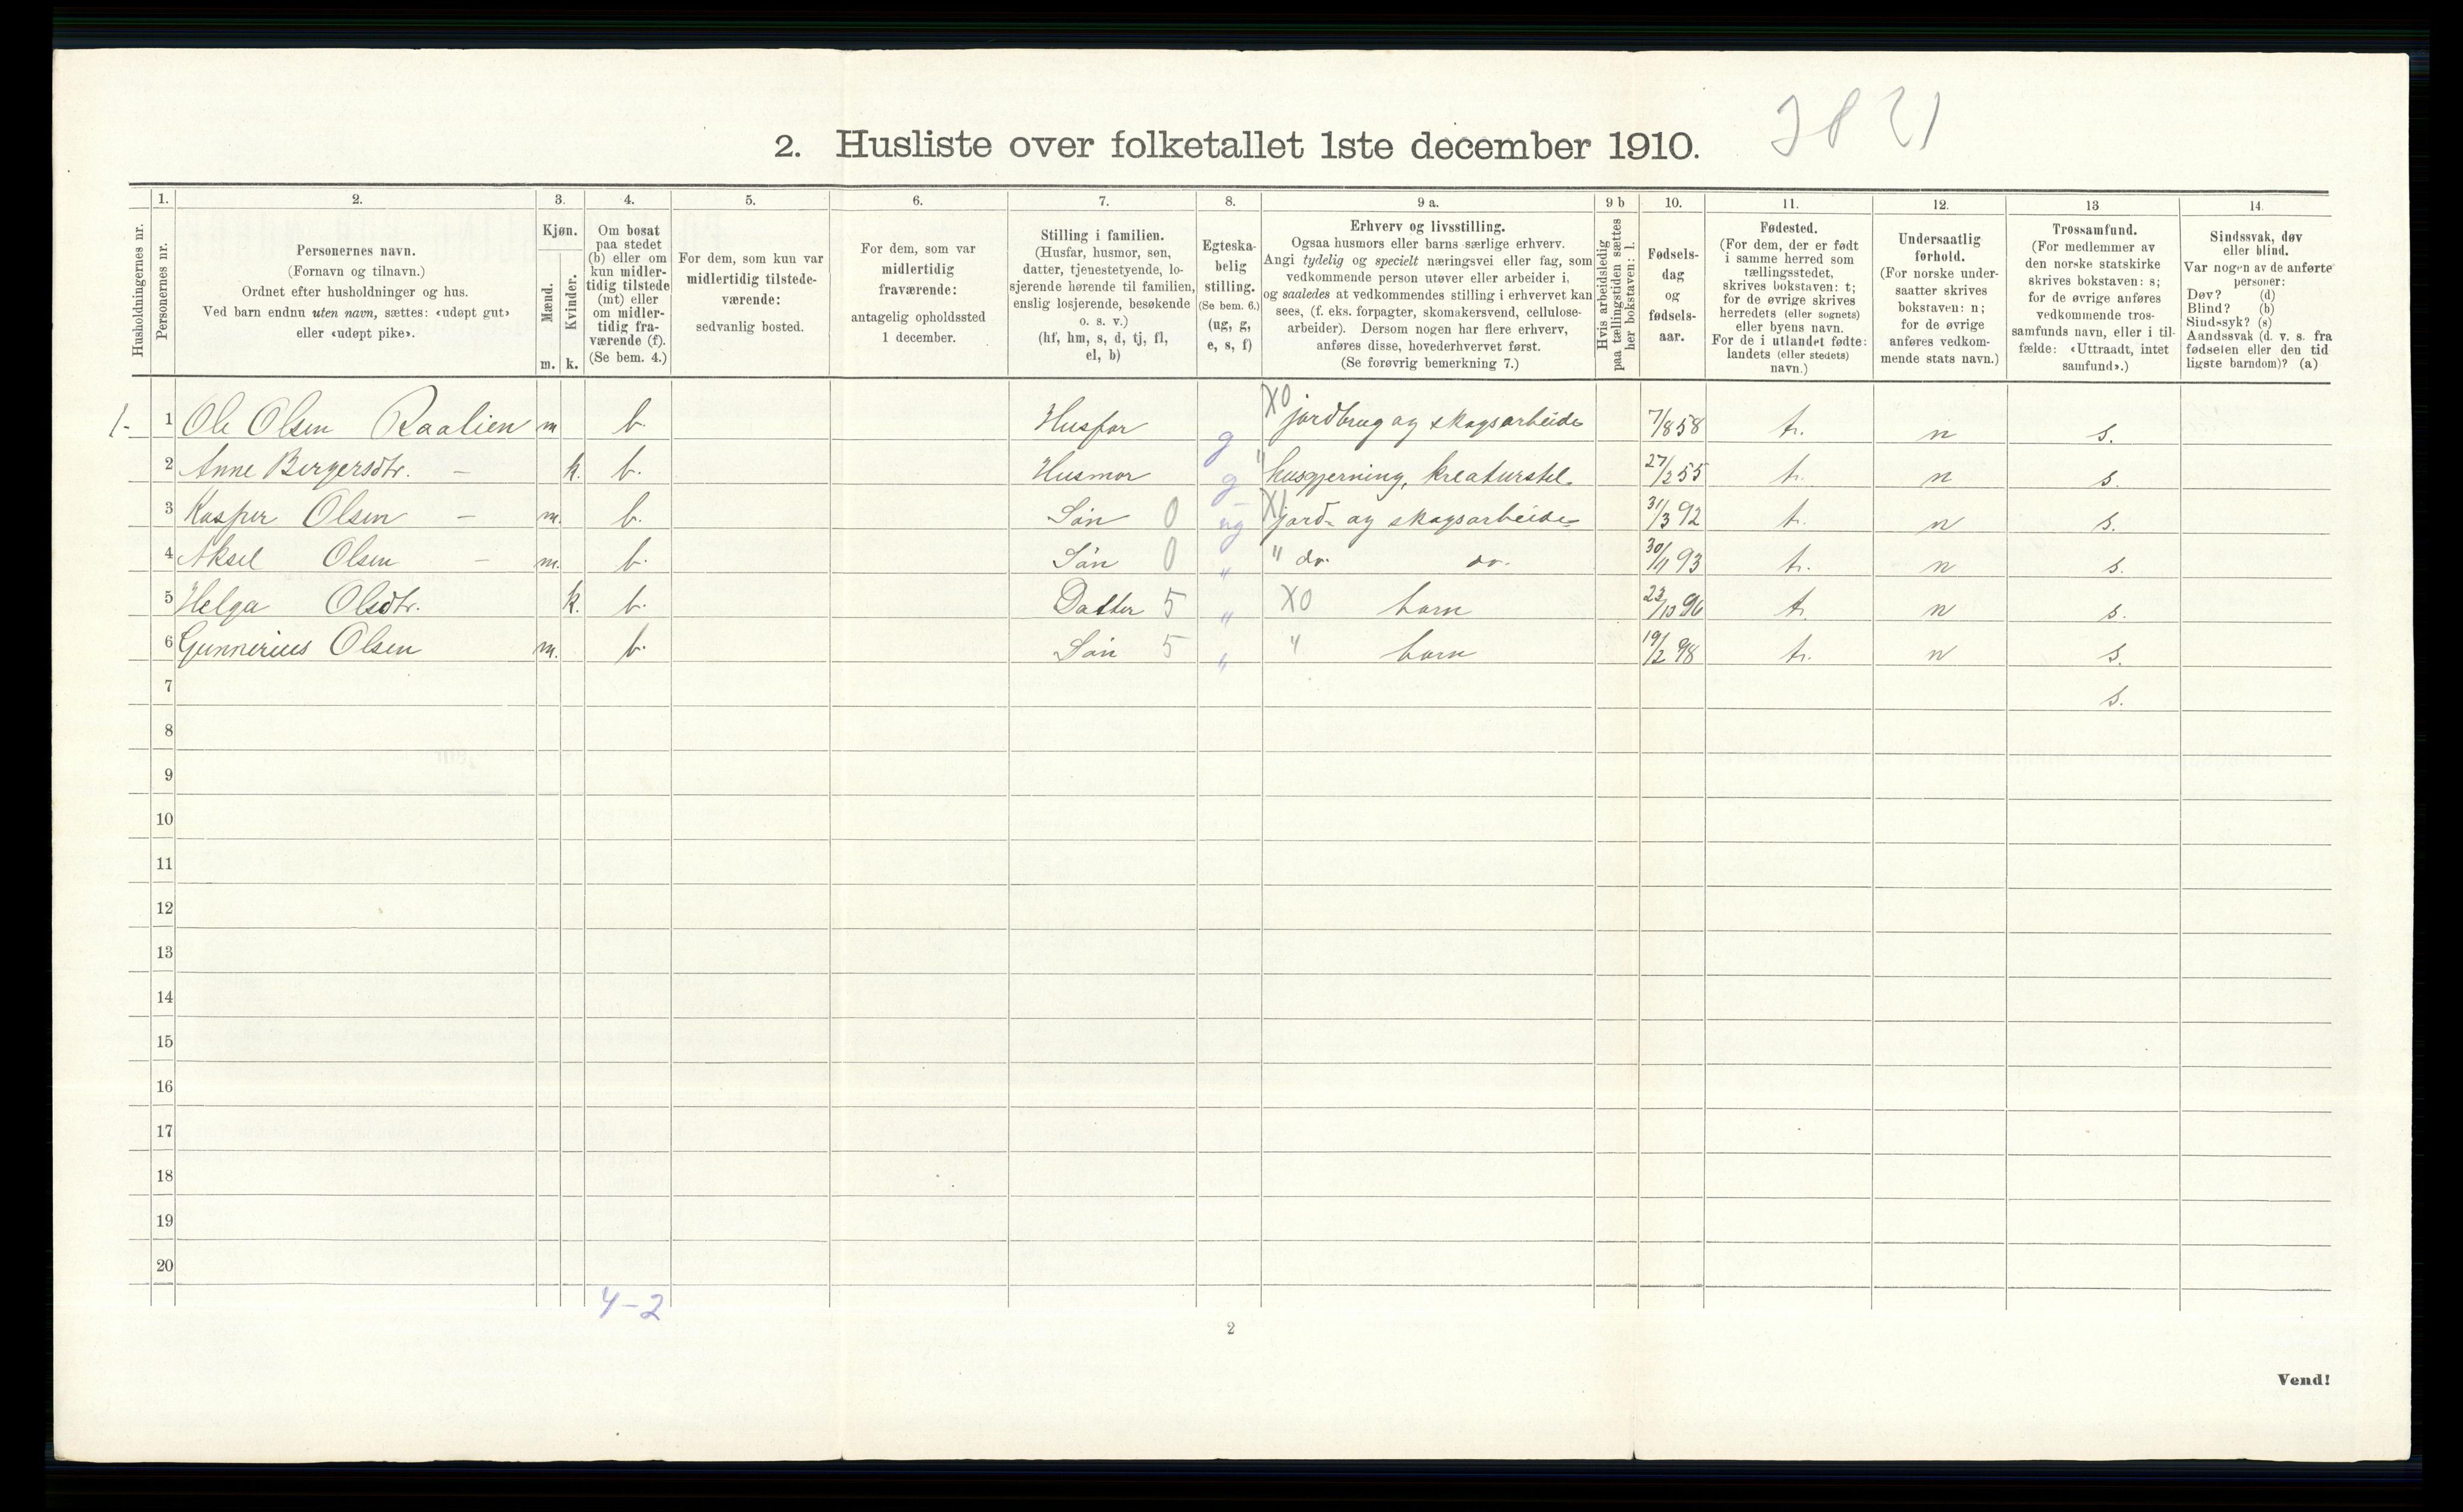 2. Husliste over folketallet 1ste december 1910.
Husholdningernes nr.
1.
Personernes nr.
2.
Personernes navn.
(Fornavn og tilnavn.)
Ordnet efter husholdninger og hus.
Ved barn endnu uten navn, sættes: «udøpt gut»
eller «udøpt pike».
3.
Kjøn.
Mænd.
Kvinder.
m. k.
4.
Om bosat
paa stedet
(b) eller om
kun midler-
tidig tilstede
(mt) eller
om midler-
tidig fra-
værende (f).
(Se bem. 4.)
5.
For dem, som kun var
midlertidig tilstede-
værende:
sedvanlig bosted.
6.
For dem, som var
midlertidig
fraværende:
antagelig opholdssted
1 december.
7.
Stilling i familien.
(Husfar, husmor, søn,
datter, tjenestetyende, lo-
sjerende hørende til familien,
enslig losjerende, besøkende
o. s. v.)
(hf, hm, s, d, tj, fl,
el, b)
8.
Egteska-
belig
stilling.
(Se bem. 6.)
(ug, g,
e, s, f)
9 a.
Erhverv og livsstilling.
Ogsaa husmors eller barns særlige erhverv.
Angi tydelig og specielt næringsvei eller fag, som
vedkommende person utøver eller arbeider i,
og saaledes at vedkommendes stilling i erhvervet kan
sees, (f. eks. forpagter, skomakersvend, cellulose-
arbeider). Dersom nogen har flere erhverv,
anføres disse, hovederhvervet først.
(Se forøvrig bemerkning 7.)
9 b
Hvis arbeidsledig
paa tællingstiden sættes
her bokstaven: l.
10.
Fødsels-
dag
og
fødsels-
aar.
11.
Fødested.
(For dem, der er født
i samme herred som
tællingsstedet,
skrives bokstaven: t;
for de øvrige skrives
herredets (eller sognets)
eller byens navn.
For de i utlandet fødte:
landets (eller stedets)
navn.)
12.
Undersaatlig
forhold.
(For norske under-
saatter skrives
bokstaven: n;
for de øvrige
anføres vedkom-
mende stats navn.)
13
Trossamfund.
(For medlemmer av
den norske statskirke
skrives bokstaven: s;
for de øvrige anføres
vedkommende tros-
samfunds navn, eller i til-
fælde: «Uttraadt, intet
samfund».)
14.
Sindssvak, døv
eller blind.
Var nogen av de anførte
personer:
Døv? (d)
Blind? (b)
Sindssyk? (s)
Aandssvak (d. v. s. fra
fødselen eller den tid
ligste barndom)? (a)
1- 1 Ole Olsen Raalien m b. Husfar g X0 jordbrug og skogsarbeide 7/8 58 t. n s.
2 Anne Bergersdtr. - k. b. Husmor g " husgjerning, kreaturstel 27/2 55 t. n s.
3 Kasper Olsen - m. b. Søn 0 ug X1 jord- og skogsarbeide 31/3 92 t. n s.
4 Aksel Olsen - m. b. Søn 0 " " do. do. 30/11 93 t. n s.
5 Helga Olsdtr. k. b. Datter 5 " X0 barn 23/10 96 t. n s.
6 Gunnerius Olsen m. b. Søn 5 " " barn 19/2 98 t. n s.
7 s.
8
9
10
11
12
13
14
15
16
17
18
19
20
4-2
2
Vend!